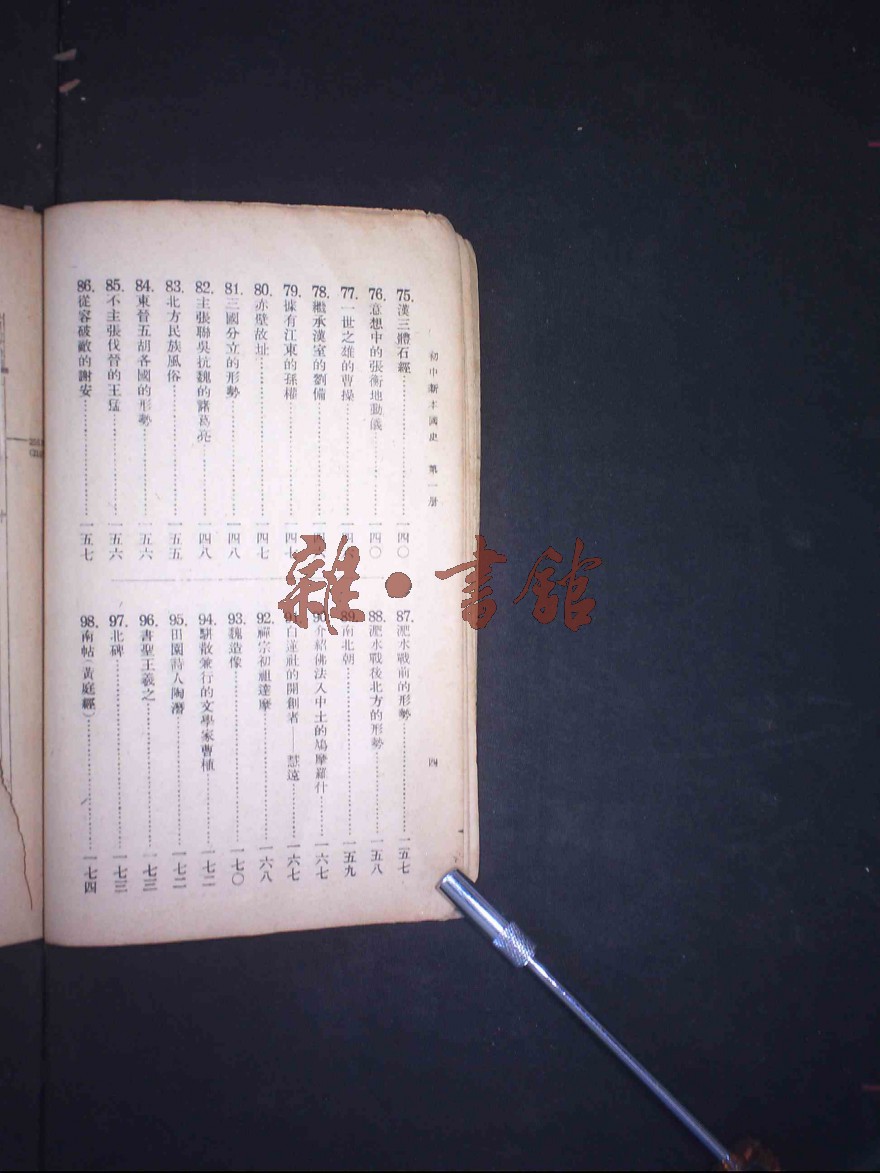 初中新本國史 第一册
四
75.漢三體石經……一四〇
76.意想中的張衡地動儀……一四〇
77.一世之雄的曹操……一四
78.繼承漢室的劉備……一四
79.據有江東的孫權……一四七
80.赤壁故址……一四七
81.三國分立的形勢……一四八
82.主張聯吳抗魏的諸葛亮……一四八
83.北方民族風俗……一五五
84.東晉五胡各國的形勢……一五六
85.不主張伐晉的王猛……一五六
86.從容破敵的謝安……一五七
87.淝水戰前的形勢……一五七
88.淝水戰後北方的形勢……一五八
89.南北朝……一五九
90.介紹佛法入中土的鳩摩羅什……一六七
91.白蓮社的開創者——慧遠……一六七
92.禪宗初祖達摩……一六八
93.魏造像……一七〇
94.駢散兼行的文學家曹植……一七二
95.田園詩人陶潛……一七二
96.書聖王羲之……一七三
97.北碑……一七三
98.南帖(黃庭經)……一七四
雜·書館